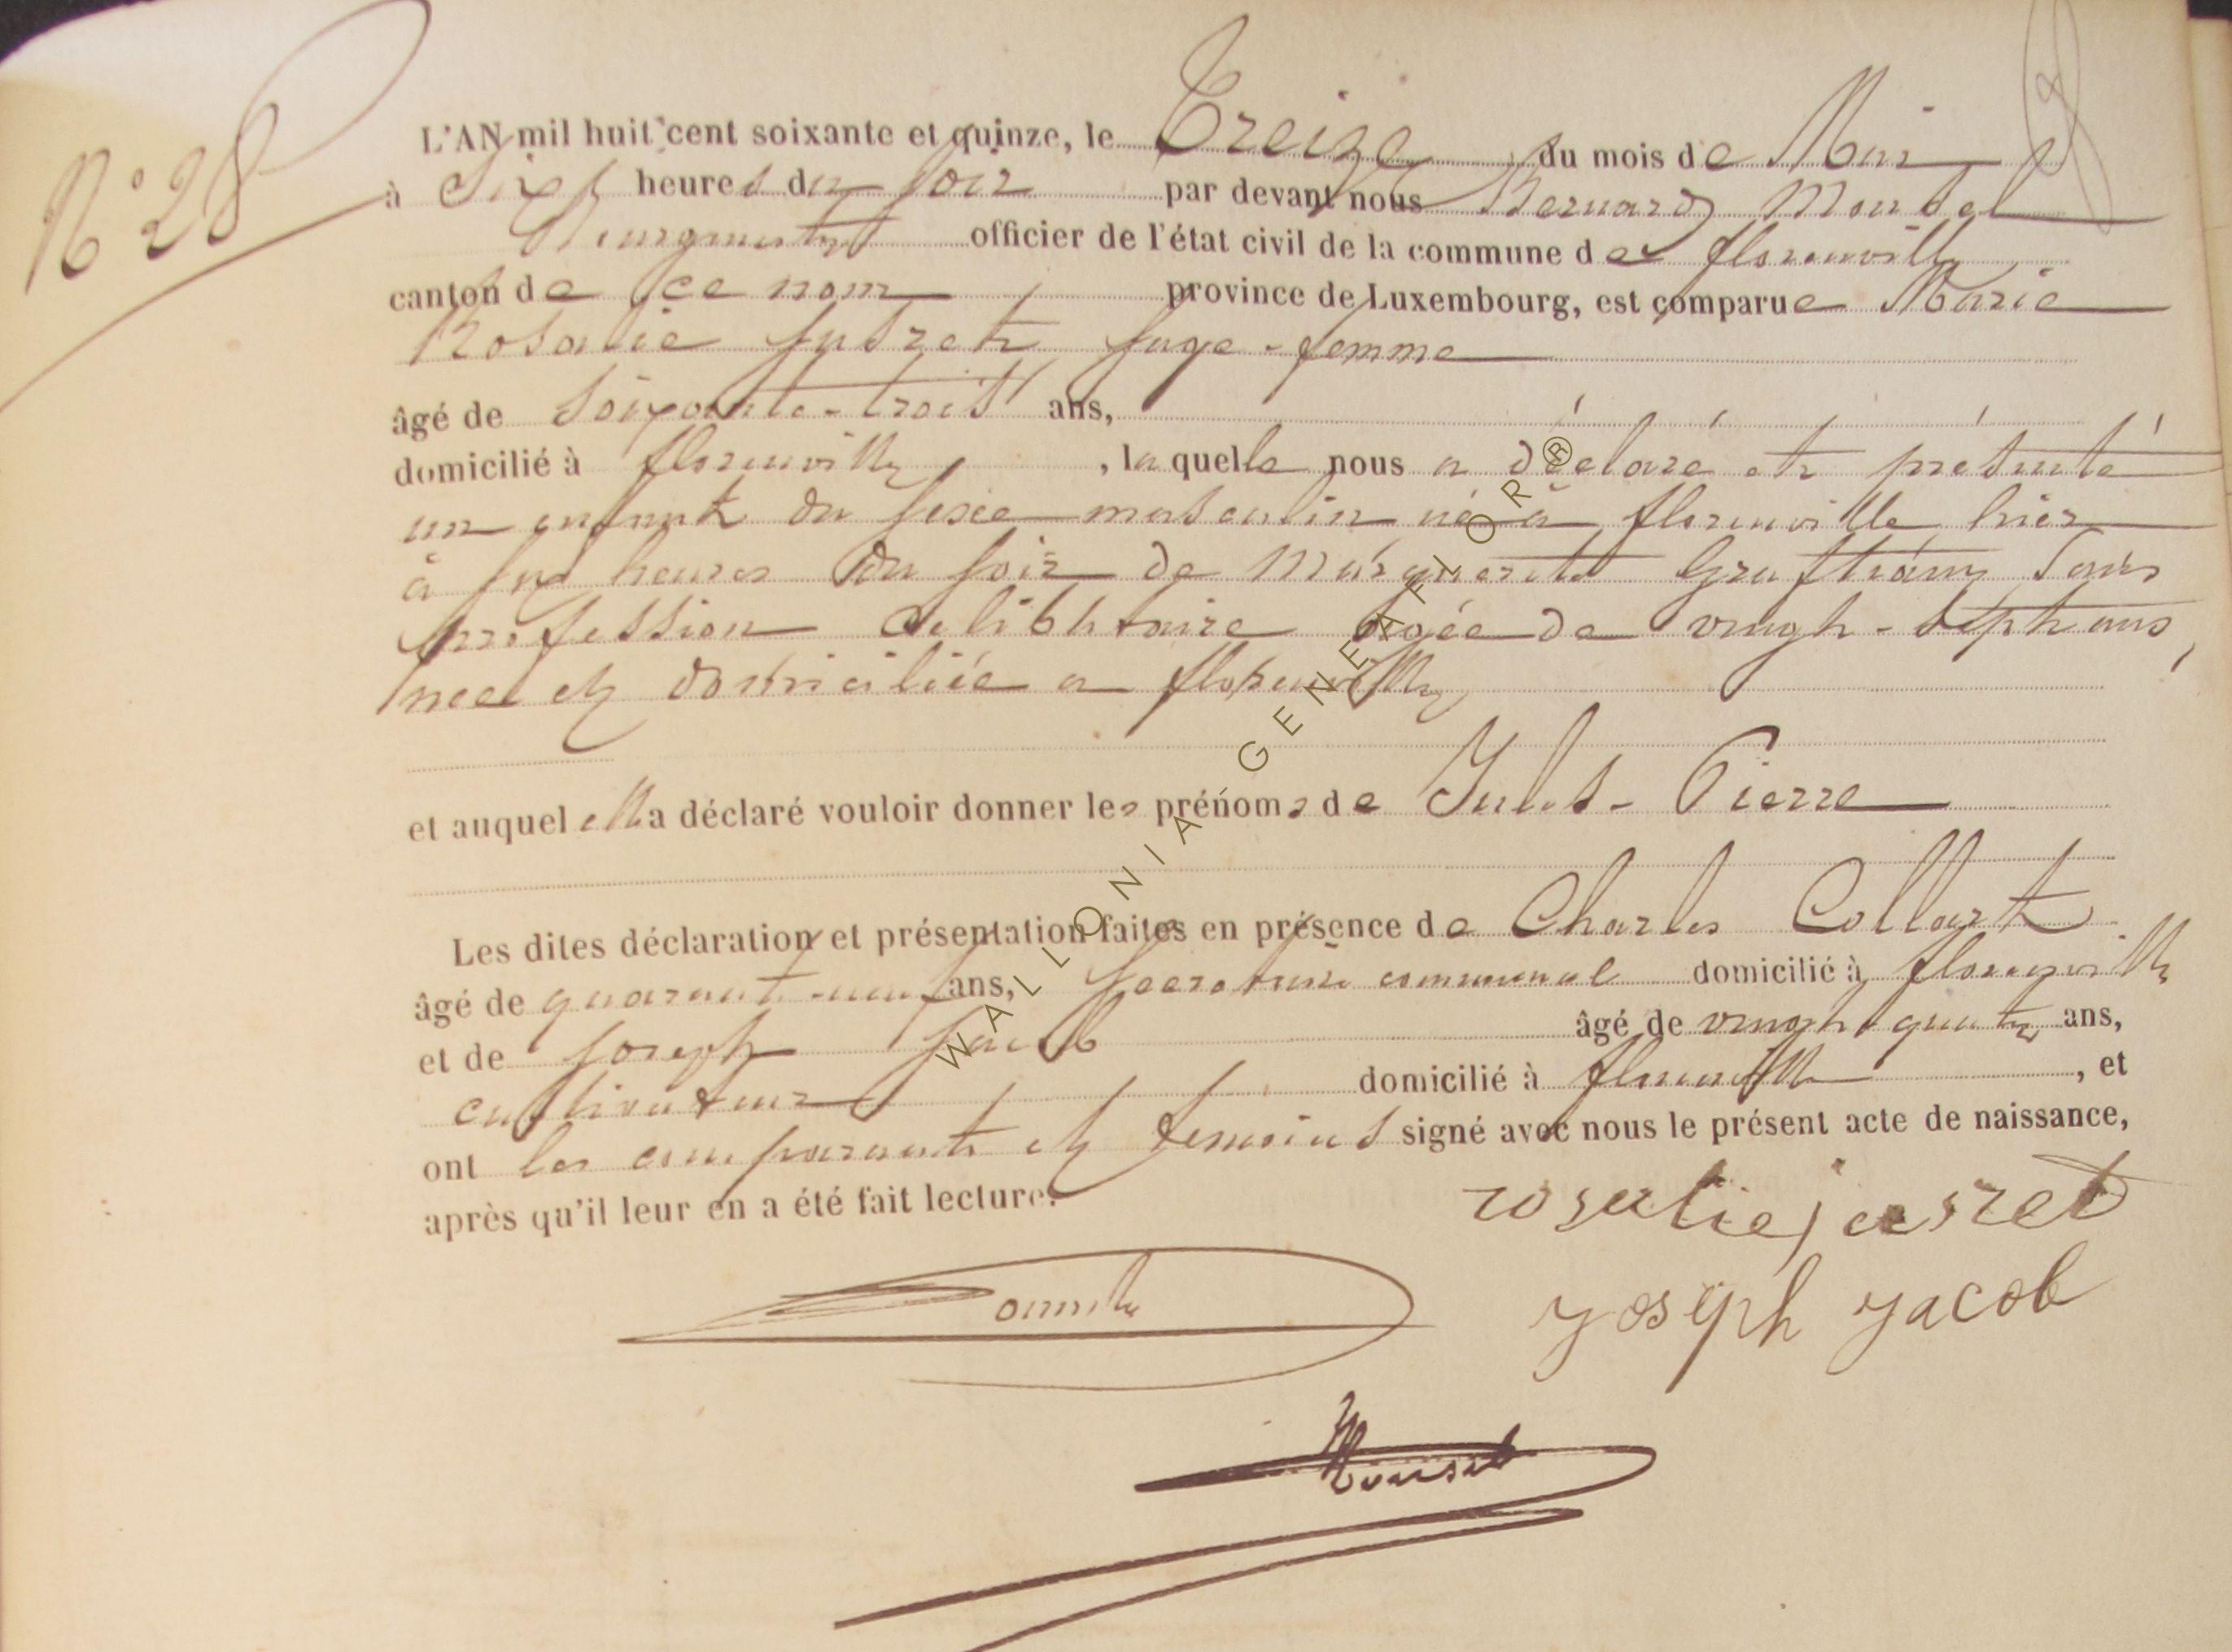 N° 28
L'AN mil huit cent soixante et quinze, le Treize du mois de Mai
à Six heures du soir par devant nous Bernard
Bourgmestre officier de l'état civil de la commune de florenville
canton de ce nom province de Luxembourg, est comparue Marie
Rosalie Jusret sage-femme
âgé de Soixante-trois ans,
domicilié à florenville, laquelle nous a déclaré et présenté
un enfant du sexe masculin né à florenville hier
à six heures du soir de Marguerite sans
profession celibataire agée de vingt-sept ans,
née et domiciliée a florenville
et auquel elle a déclaré vouloir donner les prénoms de Jules-Pierre
Les dites déclaration et présentation faites en présence de Charles Collart
âgé de quarante-neuf ans, Secretaire communal domicilié à florenville
et de Joseph Jacob âgé de vingt quatre ans,
cultivateur domicilié à florenville, et
ont les comparante et temoins signé avec nous le présent acte de naissance,
après qu'il leur en a été fait lecture.
rosalie jusret
Joseph Jacob
WALLONIA GENEAFLOR ®